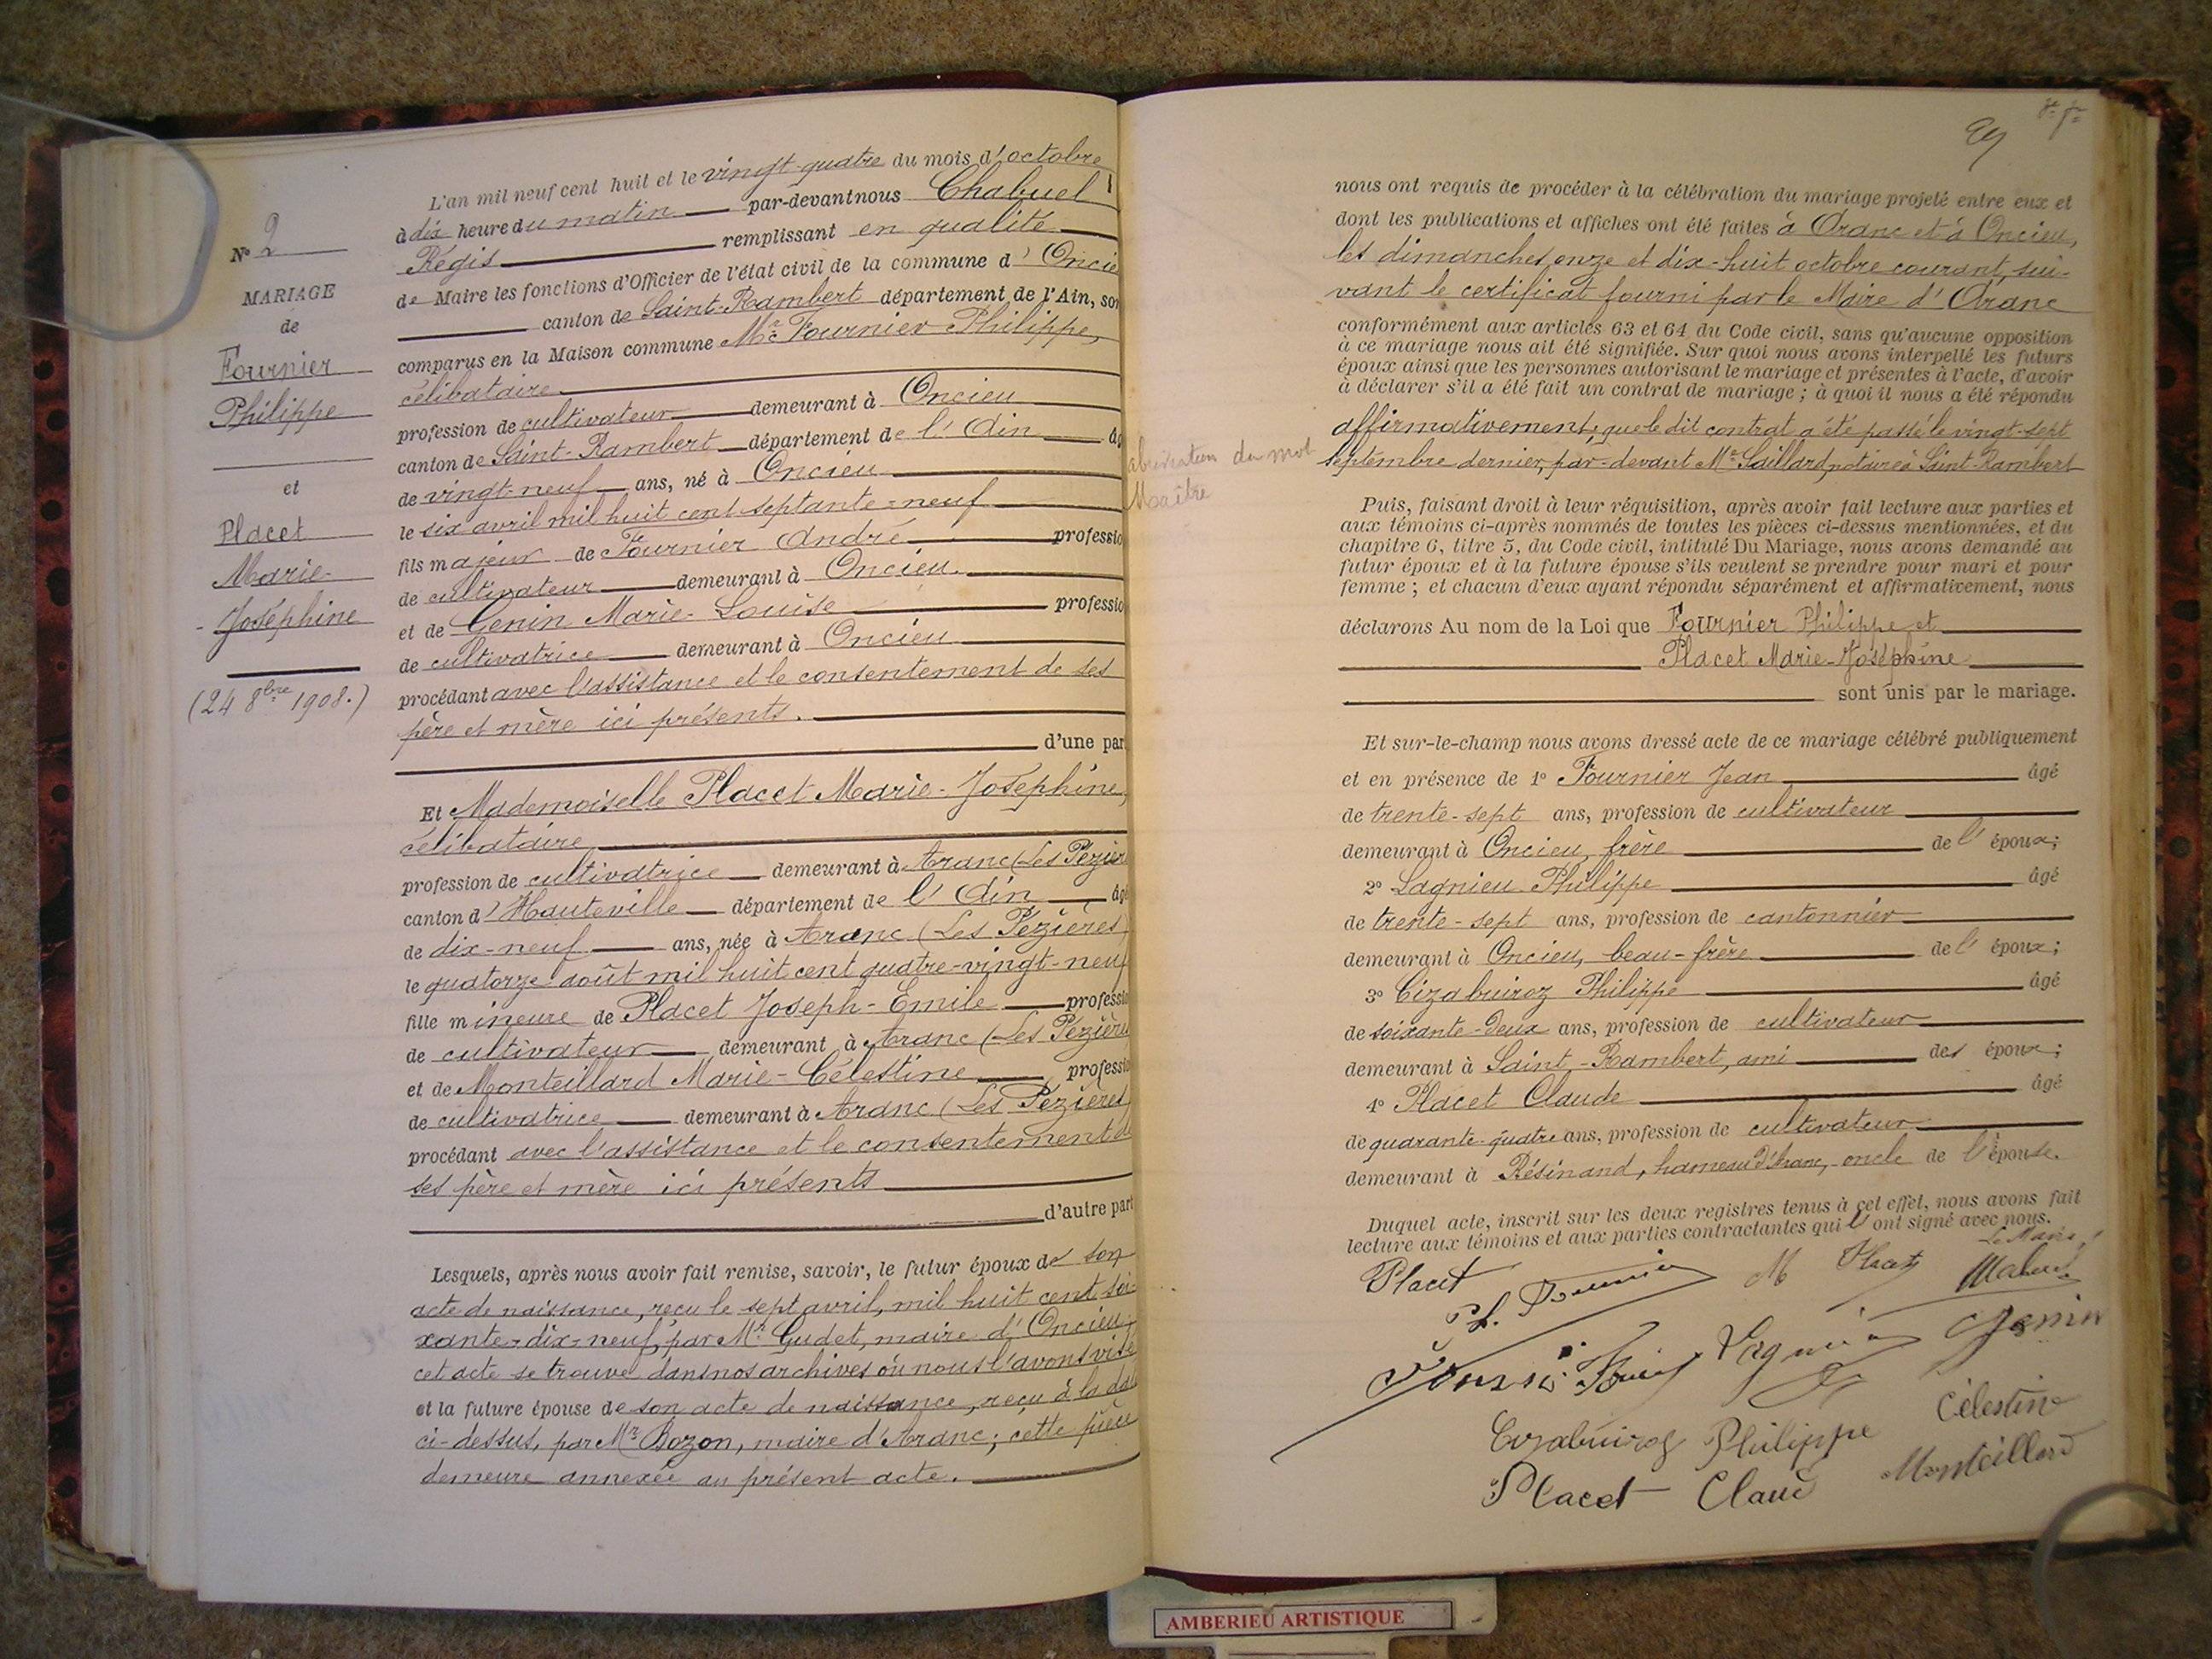 N° 2
MARIAGE
de
Fournier
Philippe
et
Placet
Marie-
Joséphine
(24 8bre 1908.)
L'an mil neuf cent huit et le vingt-quatre du mois d'octobre
à dix heure du matin par-devant nous Chabuel
Régis remplissant en qualité
de Maire les fonctions d'Officier de l'état civil de la commune d'Oncie
canton de Saint-Rambert département de l'Ain, son
comparus en la Maison commune Mr Fournier Philippe,
célibataire
profession de cultivateur demeurant à Oncieu
canton de Saint-Rambert département de l'Ain âg
de vingt-neuf ans, né à Oncieu
le six avril mil huit cent septante-neuf
fils majeur de Fournier André professio
de cultivateur demeurant à Oncieu.
et de Genin Marie-Louise professio
de cultivatrice demeurant à Oncieu
procédant avec l'assistance et le consentement de ses
père et mère ici présents.
d'une par
Et Mademoiselle Placet Marie-Joséphine,
célibataire
profession de cultivatrice demeurant à Aranc (Les Pézièr
canton d'Hauteville département de l'Ain âgé
de dix-neuf ans, née à Aranc (Les Pézières)
le quatorze août mil huit cent quatre-vingt-neuf
fille mineure de Placet Joseph-Emile professio
de cultivateur demeurant à Aranc (Les Pézière
et de Monteillard Marie-Célestine professio
de cultivatrice demeurant à Aranc (Les Pézières)
procédant avec l'assistance et le consentement d
ses père et mère ici présents
d'autre part
Lesquels, après nous avoir fait remise, savoir, le futur époux de son
acte de naissance, reçu le sept avril, mil huit cent soi-
xante-dix-neuf, par Mr Gudet, maire d'Oncieu;
cet acte se trouve dans nos archives où nous l'avons visé
et la future épouse de son acte de naissance, reçu à la dat
ci-dessus, par Mr Bozon, maire d'Aranc; cette pièce
demeure annexée au présent acte.
29
nous ont requis de procéder à la célébration du mariage projeté entre eux et
dont les publications et affiches ont été faites à Aranc et à Oncieu,
les dimanches onze et dix-huit octobre courant, sui-
vant le certificat fourni par le Maire d'Aranc
conformément aux articles 63 et 64 du Code civil, sans qu'aucune opposition
à ce mariage nous ait été signifiée. Sur quoi nous avons interpellé les futurs
époux ainsi que les personnes autorisant le mariage et présentes à l'acte, d'avoir
à déclarer s'il a été fait un contrat de mariage; à quoi il nous a été répondu
affirmativement, que le dit contrat a été passé le vingt-sept
septembre dernier, par-devant Me Saillard, notaire à Saint-Rambert
abréviation du mot
Maître
Puis, faisant droit à leur réquisition, après avoir fait lecture aux parties et
aux témoins ci-après nommés de toutes les pièces ci-dessus mentionnées, et du
chapitre 6, titre 5, du Code civil, intitulé Du Mariage, nous avons demandé au
futur époux et à la future épouse s'ils veulent se prendre pour mari et pour
femme; et chacun d'eux ayant répondu séparément et affirmativement, nous
déclarons Au nom de la Loi que Fournier Philippe et
Placet Marie-Joséphine
sont unis par le mariage.
Et sur-le-champ nous avons dressé acte de ce mariage célébré publiquement
et en présence de 1° Fournier Jean âgé
de trente-sept ans, profession de cultivateur
demeurant à Oncieu, frère de l'époux;
2° Lagnieu Philippe âgé
de trente-sept ans, profession de cantonnier
demeurant à Oncieu, beau-frère de l'époux;
3° Cizabuiroz Philippe âgé
de soixante-deux ans, profession de cultivateur
demeurant à Saint-Rambert, ami des époux;
4° Placet Claude âgé
de quarante-quatre ans, profession de cultivateur
demeurant à Résinand, hameau d'Aranc, oncle de l'épouse.
Duquel acte, inscrit sur les deux registres tenus à cet effet, nous avons fait
lecture aux témoins et aux parties contractantes qui l'ont signé avec nous.
Le Maire,
Placet Ph. Fournier M Placet Chabuel
Lagnieu Genin
Cizabuiroz Philippe Célestine
Placet Claude Monteillard
AMBERIEU ARTISTIQUE